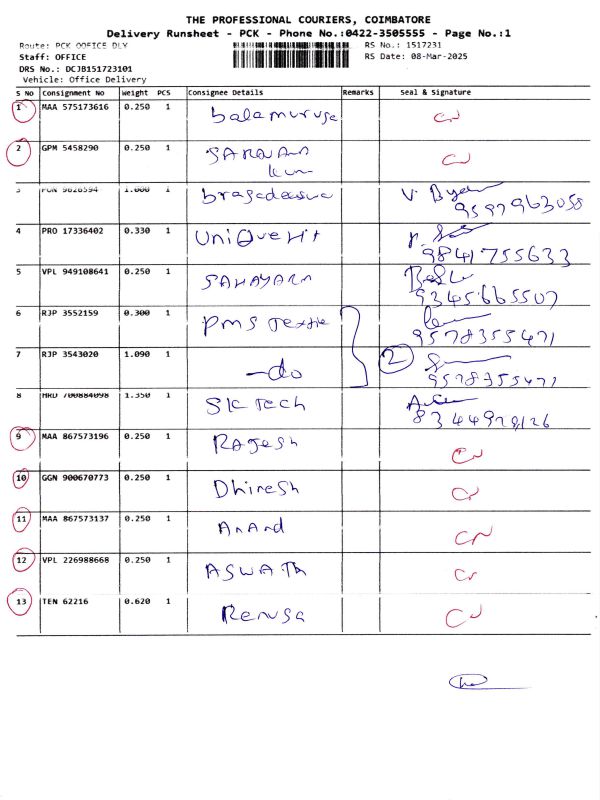 THE PROFESSIONAL COURIERS, COIMBATORE
Delivery Runsheet - PCK - Phone No.:0422-3505555 - Page No.:1
Route: PCK OOFICE DLY RS No.: 1517231
Staff: OFFICE RS Date: 08-Mar-2025
DRS No.: DCJB151723101
Vehicle: Office Delivery
S No Consignment No Weight PCS Consignee Details Remarks Seal & Signature
1 MAA 575173616 0.250 1 balamuruga
2 GPM 5458290 0.250 1 SARAVANA
3 9826594 1.000 1 9597963058
4 PRO 17336402 0.330 1 UNIQUE HIT 9841755633
5 VPL 949108641 0.250 1 SAHAYARA 9345665507
6 RJP 3552159 0.300 1 PMS Textile 9578355471
7 RJP 3543020 1.090 1 -do 2 9578355471
8 HRD 700884098 1.350 1 SK Tech 8344928126
9 MAA 867573196 0.250 1 RAJESH
10 GGN 900670773 0.250 1 Dhinesh
11 MAA 867573137 0.250 1 Anand
12 VPL 226988668 0.250 1 ASWATH
13 TEN 62216 0.620 1 Renuga